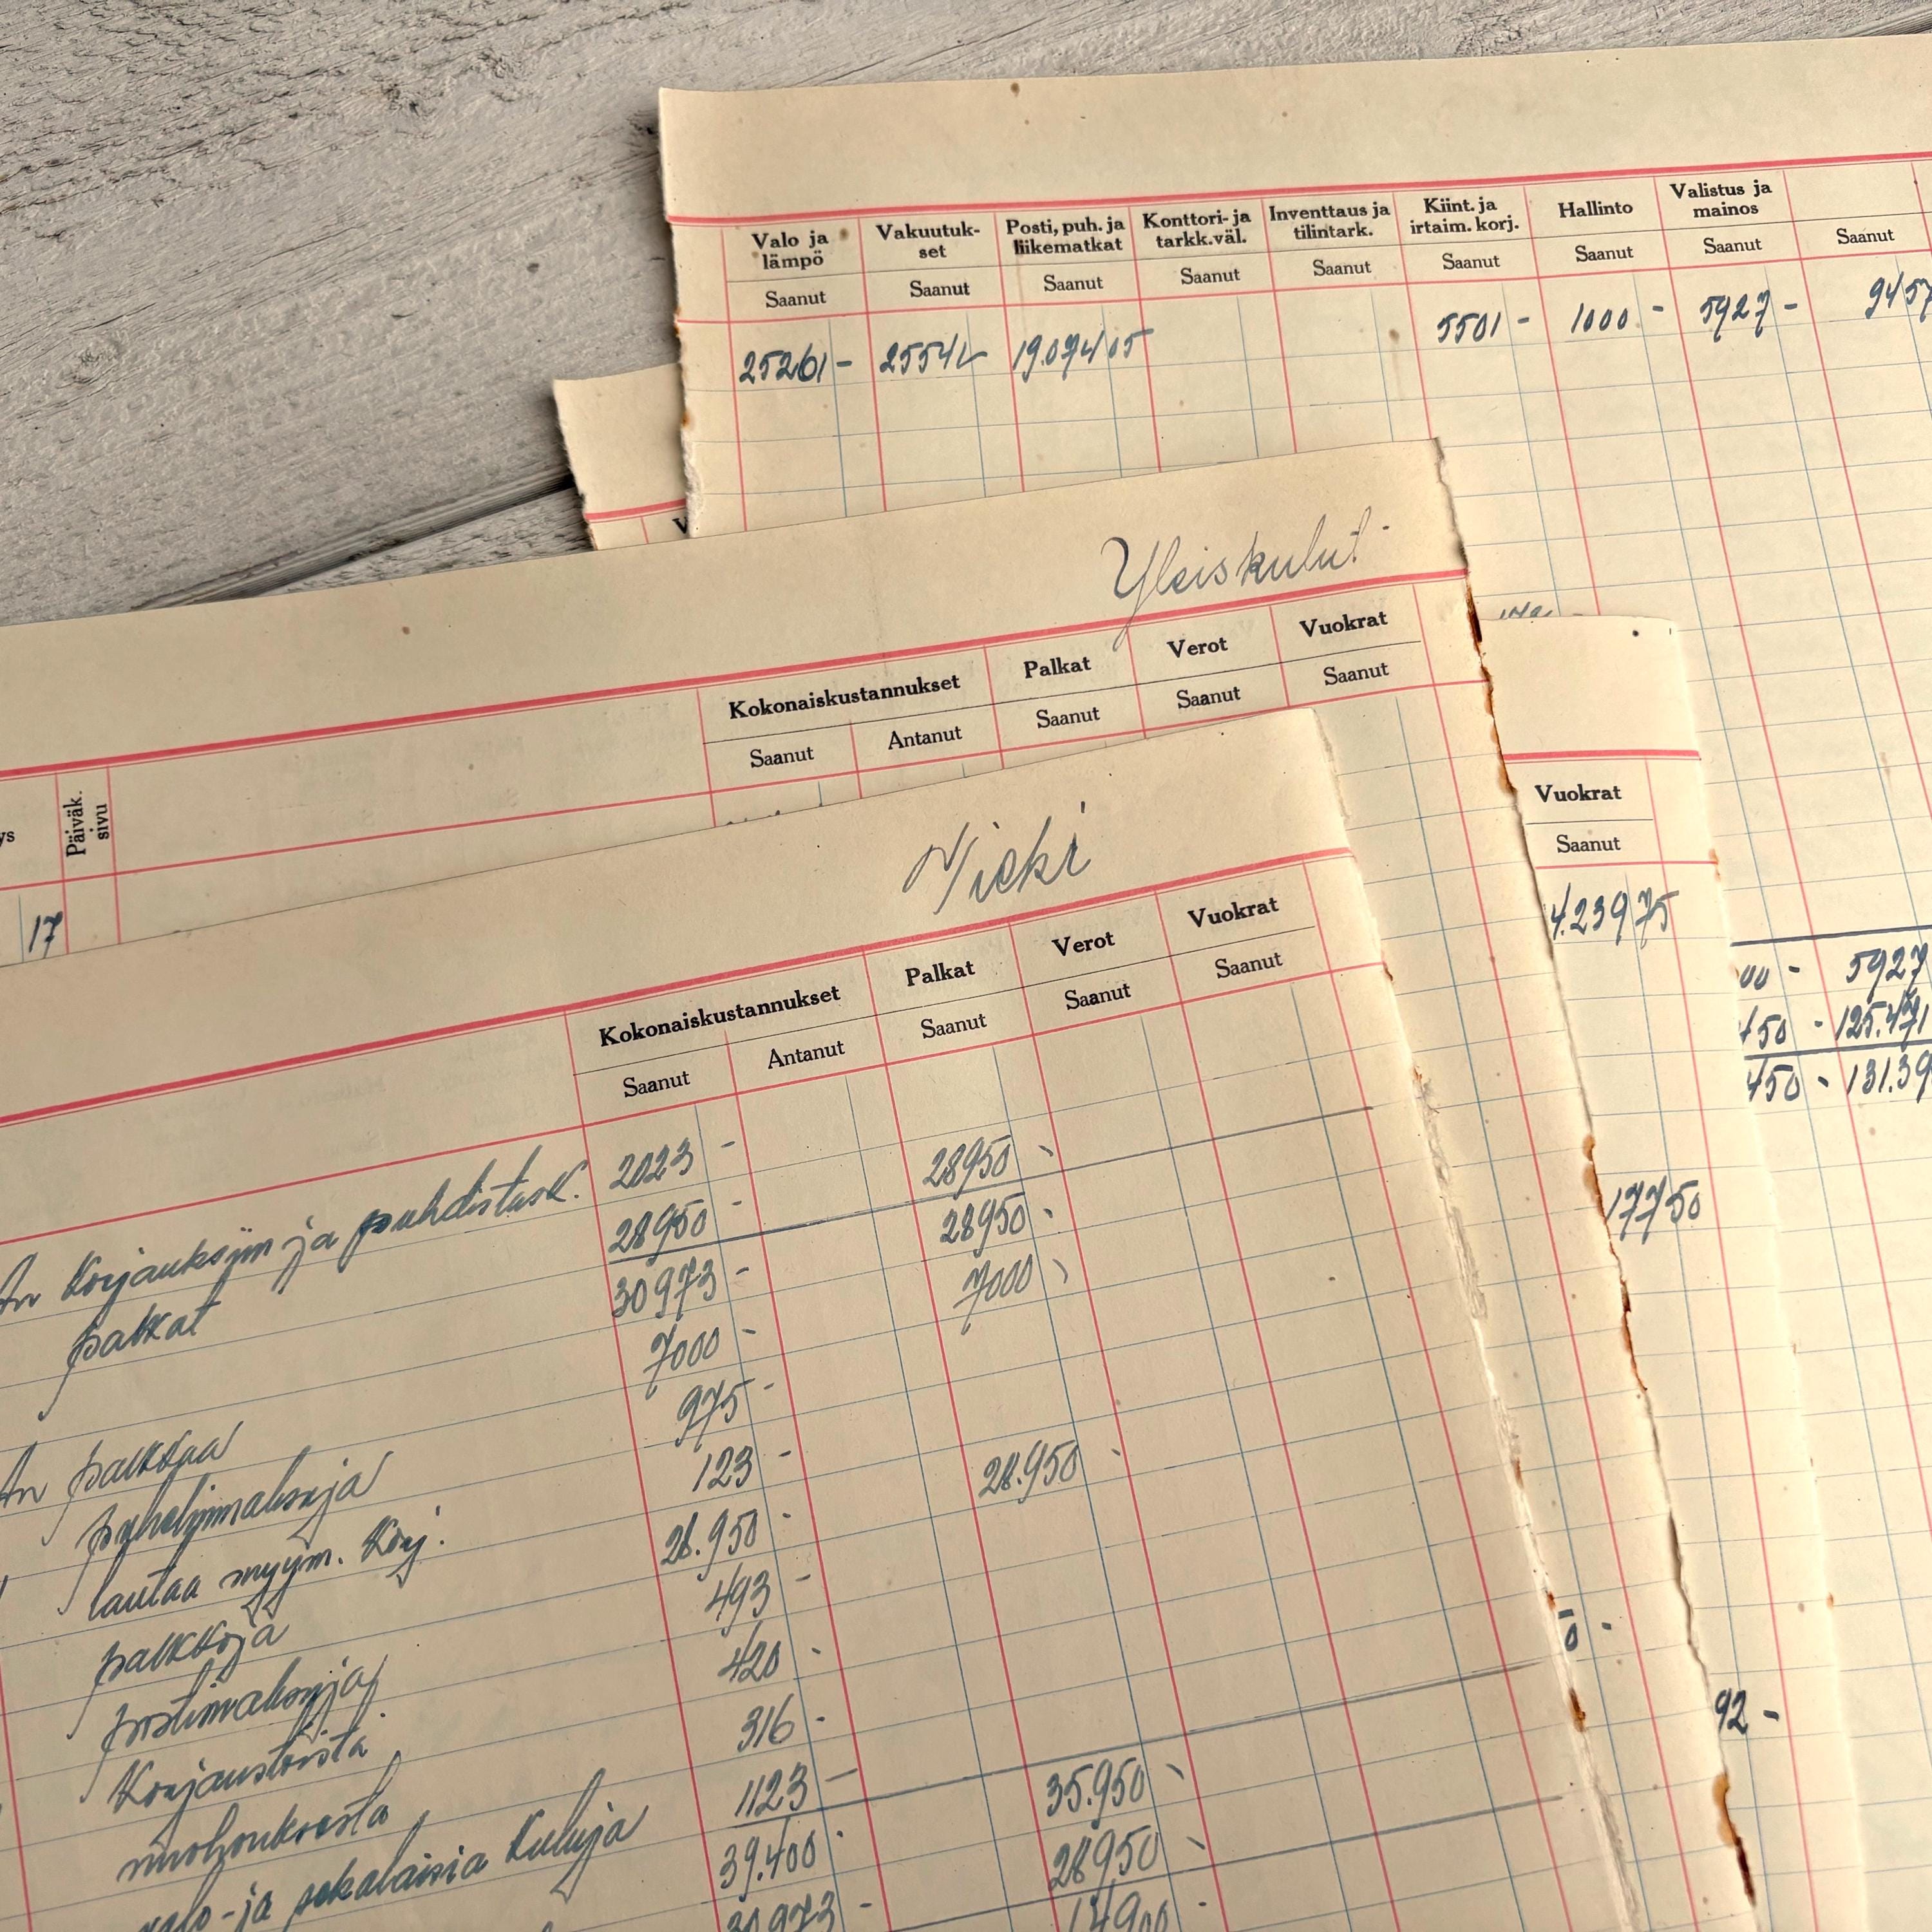 Valo ja lämpö Vakuutuk-set Posti, puh. ja liikematkat Konttori- ja tarkk.väl. Inventtaus ja tilintark. Kiint. ja irtaim. korj. Hallinto Valistus ja mainos
Saanut Saanut Saanut Saanut Saanut Saanut Saanut Saanut Saanut
25261 - 2554 19.074 05 5501 - 1000 - 5927 - 9457
V
Yleiskulut
Kokonaiskustannukset Palkat Verot Vuokrat
Saanut Antanut Saanut Saanut Saanut
ys Päiväk. sivu
17
Vuokrat
Saanut
4.239 75
00 - 5927
450 - 125.471
450 - 131.39
177 50
0 -
92 -
Kokonaiskustannukset Palkat Verot Vuokrat
Saanut Antanut Saanut Saanut Saanut
An korjauksiin ja puhdistusk. 2023 - 28950 -
palkat 28950 - 28950 -
30973 - 7000 -
An palkkaa 7000 -
puhelinmaksuja 975 -
lautaa myym. korj. 123 - 28.950 -
palkkoja 28.950 -
postimaksuja 493 -
korjaustöistä 420 -
nuohouksesta 316 -
valo- ja sekalaisia kuluja 1123 - 35.950 -
39.400 - 28950 -
30973 - 14900 -